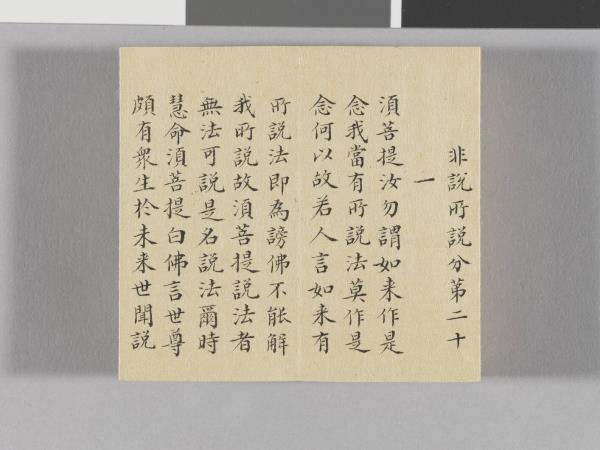 非說所說分第二十
一
須菩提汝勿謂如来作是
念我當有所說法莫作是
念何以故若人言如来有
所說法即為謗佛不能解
我所說故須菩提說法者
無法可說是名說法爾時
慧命須菩提白佛言世尊
頗有衆生於未来世聞說